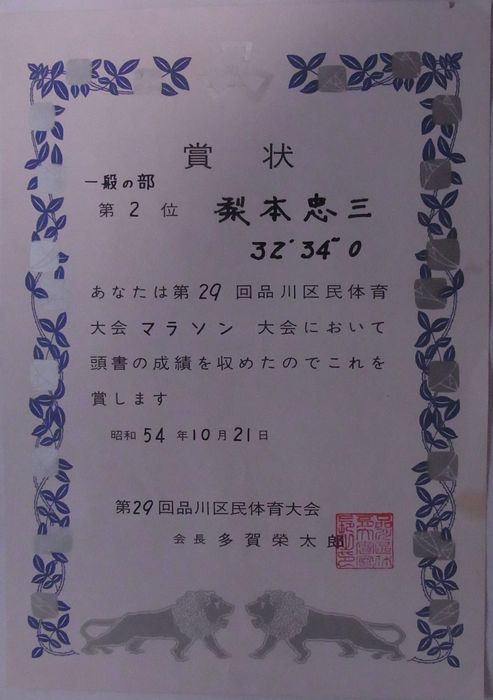 賞状
一般の部
第2位 梨本忠三
32'34"0
あなたは第29回品川区民体育
大会マラソン大会において
頭書の成績を収めたのでこれを
賞します
昭和54年10月21日
第29回品川区民体育大会
会長 多賀榮太郎